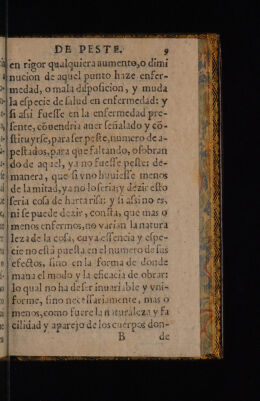 DE PESTE. 9
en rigor qualquiera aumento, o dimi
nucion de aquel punto haze enfer-
medad, o mala disposicion, y muda
la especie de salud en enfermedad: y
si assi fuesse en la enfermedad pre-
sente, cõvendria auer señalado y cõ-
stituyrse, para ser peste, numero de a-
pestados, para que faltando, o sobran
do de aquel, ya no fuesse peste: de-
manera, que si vno huuiesse menos
de la mitad, ya no lo seria: y dezir esto
seria cosa de hartarisa: y si assi no es,
ni se puede dezir, consta, que mas o
menos enfermos, no varian la natura
leza de la cosa, cuya essencia y espe-
cie no està puesta en el numero de sus
efectos, sino en la forma de donde
mana el modo y la eficacia de obrar:
lo qual no ha de ser inuariable y vni-
forme, sino necessariamente, mas o
menos, como fuere la naturaleza y fa
cilidad y aparejo de los cuerpos don-
B de